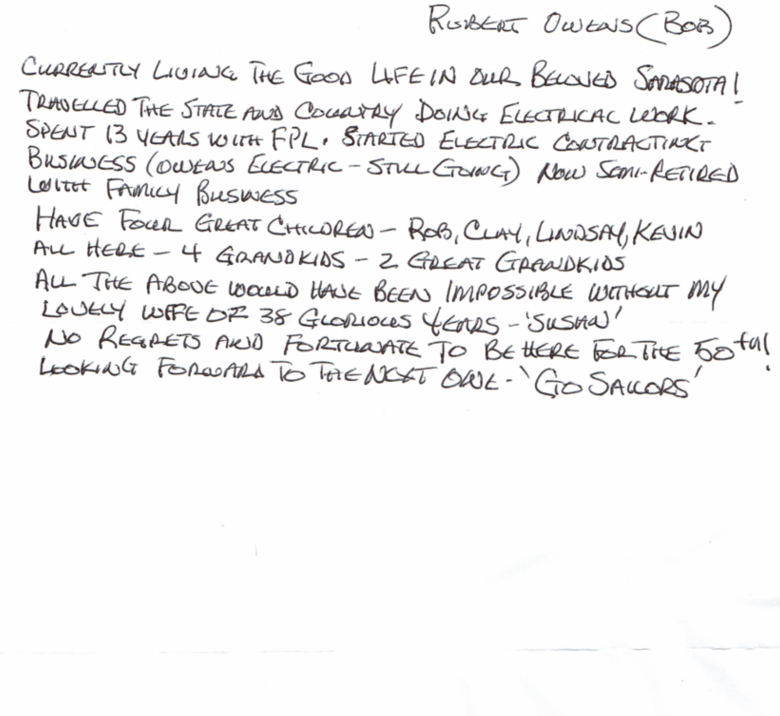 ROBERT OWENS (BOB)
CURRENTLY LIVING THE GOOD LIFE IN OUR BELOVED SARASOTA!
TRAVELLED THE STATE AND COUNTRY DOING ELECTRICAL WORK.
SPENT 13 YEARS WITH FPL. STARTED ELECTRIC CONTRACTING
BUSINESS (OWENS ELECTRIC - STILL GOING) NOW SEMI-RETIRED
WITH FAMILY BUSINESS
HAVE FOUR GREAT CHILDREN - ROB, CLAY, LINDSAY, KEVIN
ALL HERE - 4 GRANDKIDS - 2 GREAT GRANDKIDS
ALL THE ABOVE WOULD HAVE BEEN IMPOSSIBLE WITHOUT MY
LOVELY WIFE OF 38 GLORIOUS YEARS - 'SUSAN'
NO REGRETS AND FORTUNATE TO BE HERE FOR THE 50TH!
LOOKING FORWARD TO THE NEXT ONE - 'GO SAILORS'